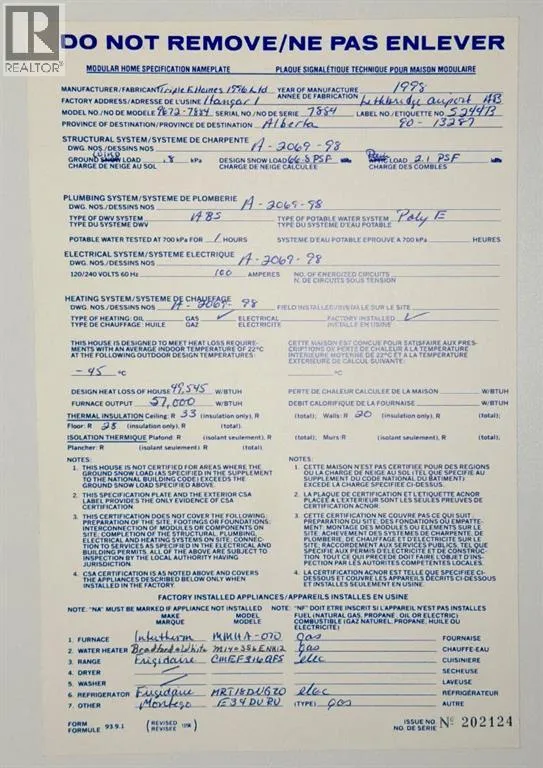 REALTOR®
DO NOT REMOVE/NE PAS ENLEVER
MODULAR HOME SPECIFICATION NAMEPLATE PLAQUE SIGNALÉTIQUE TECHNIQUE POUR MAISON MODULAIRE
MANUFACTURER/FABRICANT Triple E Homes 1996 Ltd YEAR OF MANUFACTURE 1998
ANNÉE DE FABRICATION
FACTORY ADDRESS/ADDRESSE DE L'USINE Hangar 1 Lethbridge airport AB
MODEL NO./NO DE MODÈLE 9672-7884 SERIAL NO./NO DE SERIE 7884 LABEL NO./ETIQUETTE NO S24413
PROVINCE OF DESTINATION/PROVINCE DE DESTINATION Alberta 90-13287
STRUCTURAL SYSTEM/SYSTEME DE CHARPENTE
DWG. NOS./DESSINS NOS A-2069-98
GROUND SNOW LOAD .8 kPa DESIGN SNOW LOAD 66.8 PSF LOAD 2.1 PSF
CHARGE DE NEIGE AU SOL CHARGE DE NEIGE CHARGE DES COMBLES
PLUMBING SYSTEM/SYSTEME DE PLOMBERIE
DWG. NOS./DESSINS NOS A-2069-98
TYPE OF DWV SYSTEM ABS TYPE OF POTABLE WATER SYSTEM Poly E
TYPE DU SYSTÈME DWV TYPE DU SYSTÈME D'EAU POTABLE
POTABLE WATER TESTED AT 700 kPa FOR 1 HOURS SYSTEME D'EAU POTABLE EPROUVE A 700 kPa HEURES
ELECTRICAL SYSTEM/SYSTEME ELECTRIQUE
DWG. NOS./DESSINS NOS A-2069-98
120/240 VOLTS 60 Hz 100 AMPERES NO. OF ENERGIZED CIRCUITS
N. DE CIRCUITS SOUS TENSION
HEATING SYSTEM/SYSTEME DE CHAUFFAGE
DWG. NOS./DESSINS NOS A-2069-98 FIELD INSTALLED/INSTALLE SUR LE SITE
TYPE OF HEATING: OIL GAS ✓ ELECTRICAL FACTORY INSTALLED ✓
TYPE DE CHAUFFAGE: HUILE GAZ ELECTRICITE INSTALLE EN USINE
THIS HOUSE IS DESIGNED TO MEET HEAT LOSS REQUIRE- CETTE MAISON EST CONÇUE POUR SATISFAIRE AUX PRES-
MENTS WITH AN AVERAGE INDOOR TEMPERATURE OF 22°C CRIPTIONS OU PERTE DE CHALEUR A LA TEMPERATURE
AT THE FOLLOWING OUTDOOR DESIGN TEMPERATURES: INTERIEURE MOYENNE DE 22°C ET A LA TEMPERATURE
EXTERIEUR DE CALCUL SUIVANTE:
-45 °C °C
DESIGN HEAT LOSS OF HOUSE 49,545 W/BTUH PERTE DE CHALEUR CALCULEE DE LA MAISON W/BTUH
FURNACE OUTPUT 57,000 W/BTUH DEBIT CALORIFIQUE DE LA FOURNAISE W/BTUH
THERMAL INSULATION Ceiling: R 33 (insulation only), R (total); Walls: R 20 (insulation only), R (total);
Floor: R 28 (insulation only), R (total).
ISOLATION THERMIQUE Plafond: R (isolant seulement), R (total); Murs: R (isolant seulement), R (total);
Plancher: R (isolant seulement), R (total).
NOTES: NOTES:
1. THIS HOUSE IS NOT CERTIFIED FOR AREAS WHERE THE 1. CETTE MAISON N'EST PAS CERTIFIEE POUR DES REGIONS
GROUND SNOW LOAD (AS SPECIFIED IN THE SUPPLEMENT OU LA CHARGE DE NEIGE AU SOL (TEL QUE SPECIFIE AU
TO THE NATIONAL BUILDING CODE) EXCEEDS THE SUPPLEMENT DU CODE NATIONAL DU BÂTIMENT)
GROUND SNOW LOAD SPECIFIED ABOVE. EXCEDE LA CHARGE SPECIFIEE CI-DESSUS.
2. THIS SPECIFICATION PLATE AND THE EXTERIOR CSA 2. LA PLAQUE DE CERTIFICATION ET L'ETIQUETTE ACNOR
LABEL PROVIDES THE ONLY EVIDENCE OF CSA PLACEE A L'EXTERIEUR SONT LES SEULES PREUVES DE
CERTIFICATION CERTIFICATION ACNOR.
3. THIS CERTIFICATION DOES NOT COVER THE FOLLOWING: 3. CETTE CERTIFICATION NE COUVRE PAS CE QUI SUIT:
PREPARATION OF THE SITE, FOOTINGS OR FOUNDATIONS; PREPARATION DU SITE, DES FONDATIONS OU EMPATTE-
INTERCONNECTION OF MODULES OR COMPONENTS ON MENT, MONTAGE DES MODULES OU ELEMENTS SUR LE
SITE, COMPLETION OF THE STRUCTURAL, PLUMBING, SITE: ACHEVEMENT DES SYSTEMES DE CHARPENTE,
ELECTRICAL AND HEATING SYSTEMS ON SITE; CONNEC- DE PLOMBERIE, DE CHAUFFAGE ET D'ELECTRICITE SUR LE
TION TO SERVICES AS SPECIFIED IN ELECTRICAL AND SITE; RACCORDEMENT AUX SERVICES PUBLICS, TEL QUE
BUILDING PERMITS. ALL OF THE ABOVE ARE SUBJECT TO SPECIFIE AUX PERMIS D'ELECTRICITE ET DE CONSTRUC-
INSPECTION BY THE LOCAL AUTHORITY HAVING TION. TOUT CE QUI PRECEDE DOIT FAIRE L'OBJET D'INS-
JURISDICTION PECTION PAR LES AUTORITES COMPETENTES LOCALES.
4. CSA CERTIFICATION IS AS NOTED ABOVE AND COVERS 4. LA CERTIFICATION ACNOR EST TELLE QUE SPECIFIEE CI-
THE APPLIANCES DESCRIBED BELOW ONLY WHEN DESSOUS ET COUVRE LES APPAREILS DECRITS CI-DESSOUS
INSTALLED IN THE FACTORY. ET INSTALLES SEULEMENT EN USINE.
FACTORY INSTALLED APPLIANCES/APPAREILS INSTALLES EN USINE
NOTE: "NA" MUST BE MARKED IF APPLIANCE NOT INSTALLED NOTE: "NF" DOIT ETRE INSCRIT SI L'APPAREIL N'EST PAS INSTALLE
MAKE MODEL FUEL (NATURAL GAS, PROPANE, OIL OR ELECTRIC)
MARQUE MODELE COMBUSTIBLE (GAZ NATUREL, PROPANE, HUILE OU
ELECTRICITE)
1. FURNACE Intertherm MMHA-070 gas FOURNAISE
2. WATER HEATER Bradford White gas CHAUFFE-EAU
3. RANGE Frigidaire CMEF316QFS elec CUISINIERE
4. DRYER SÉCHEUSE
5. WASHER LAVEUSE
6. REFRIGERATOR Frigidaire MRT18DUGZ0 elec RÉFRIGÉRATEUR
7. OTHER Montego E34DURU (TYPE) gas AUTRE
FORM 93.9.1 (REVISED) ISSUE NO. Nº 202124
FORMULE (REVISEE) NO. DE SÉRIE